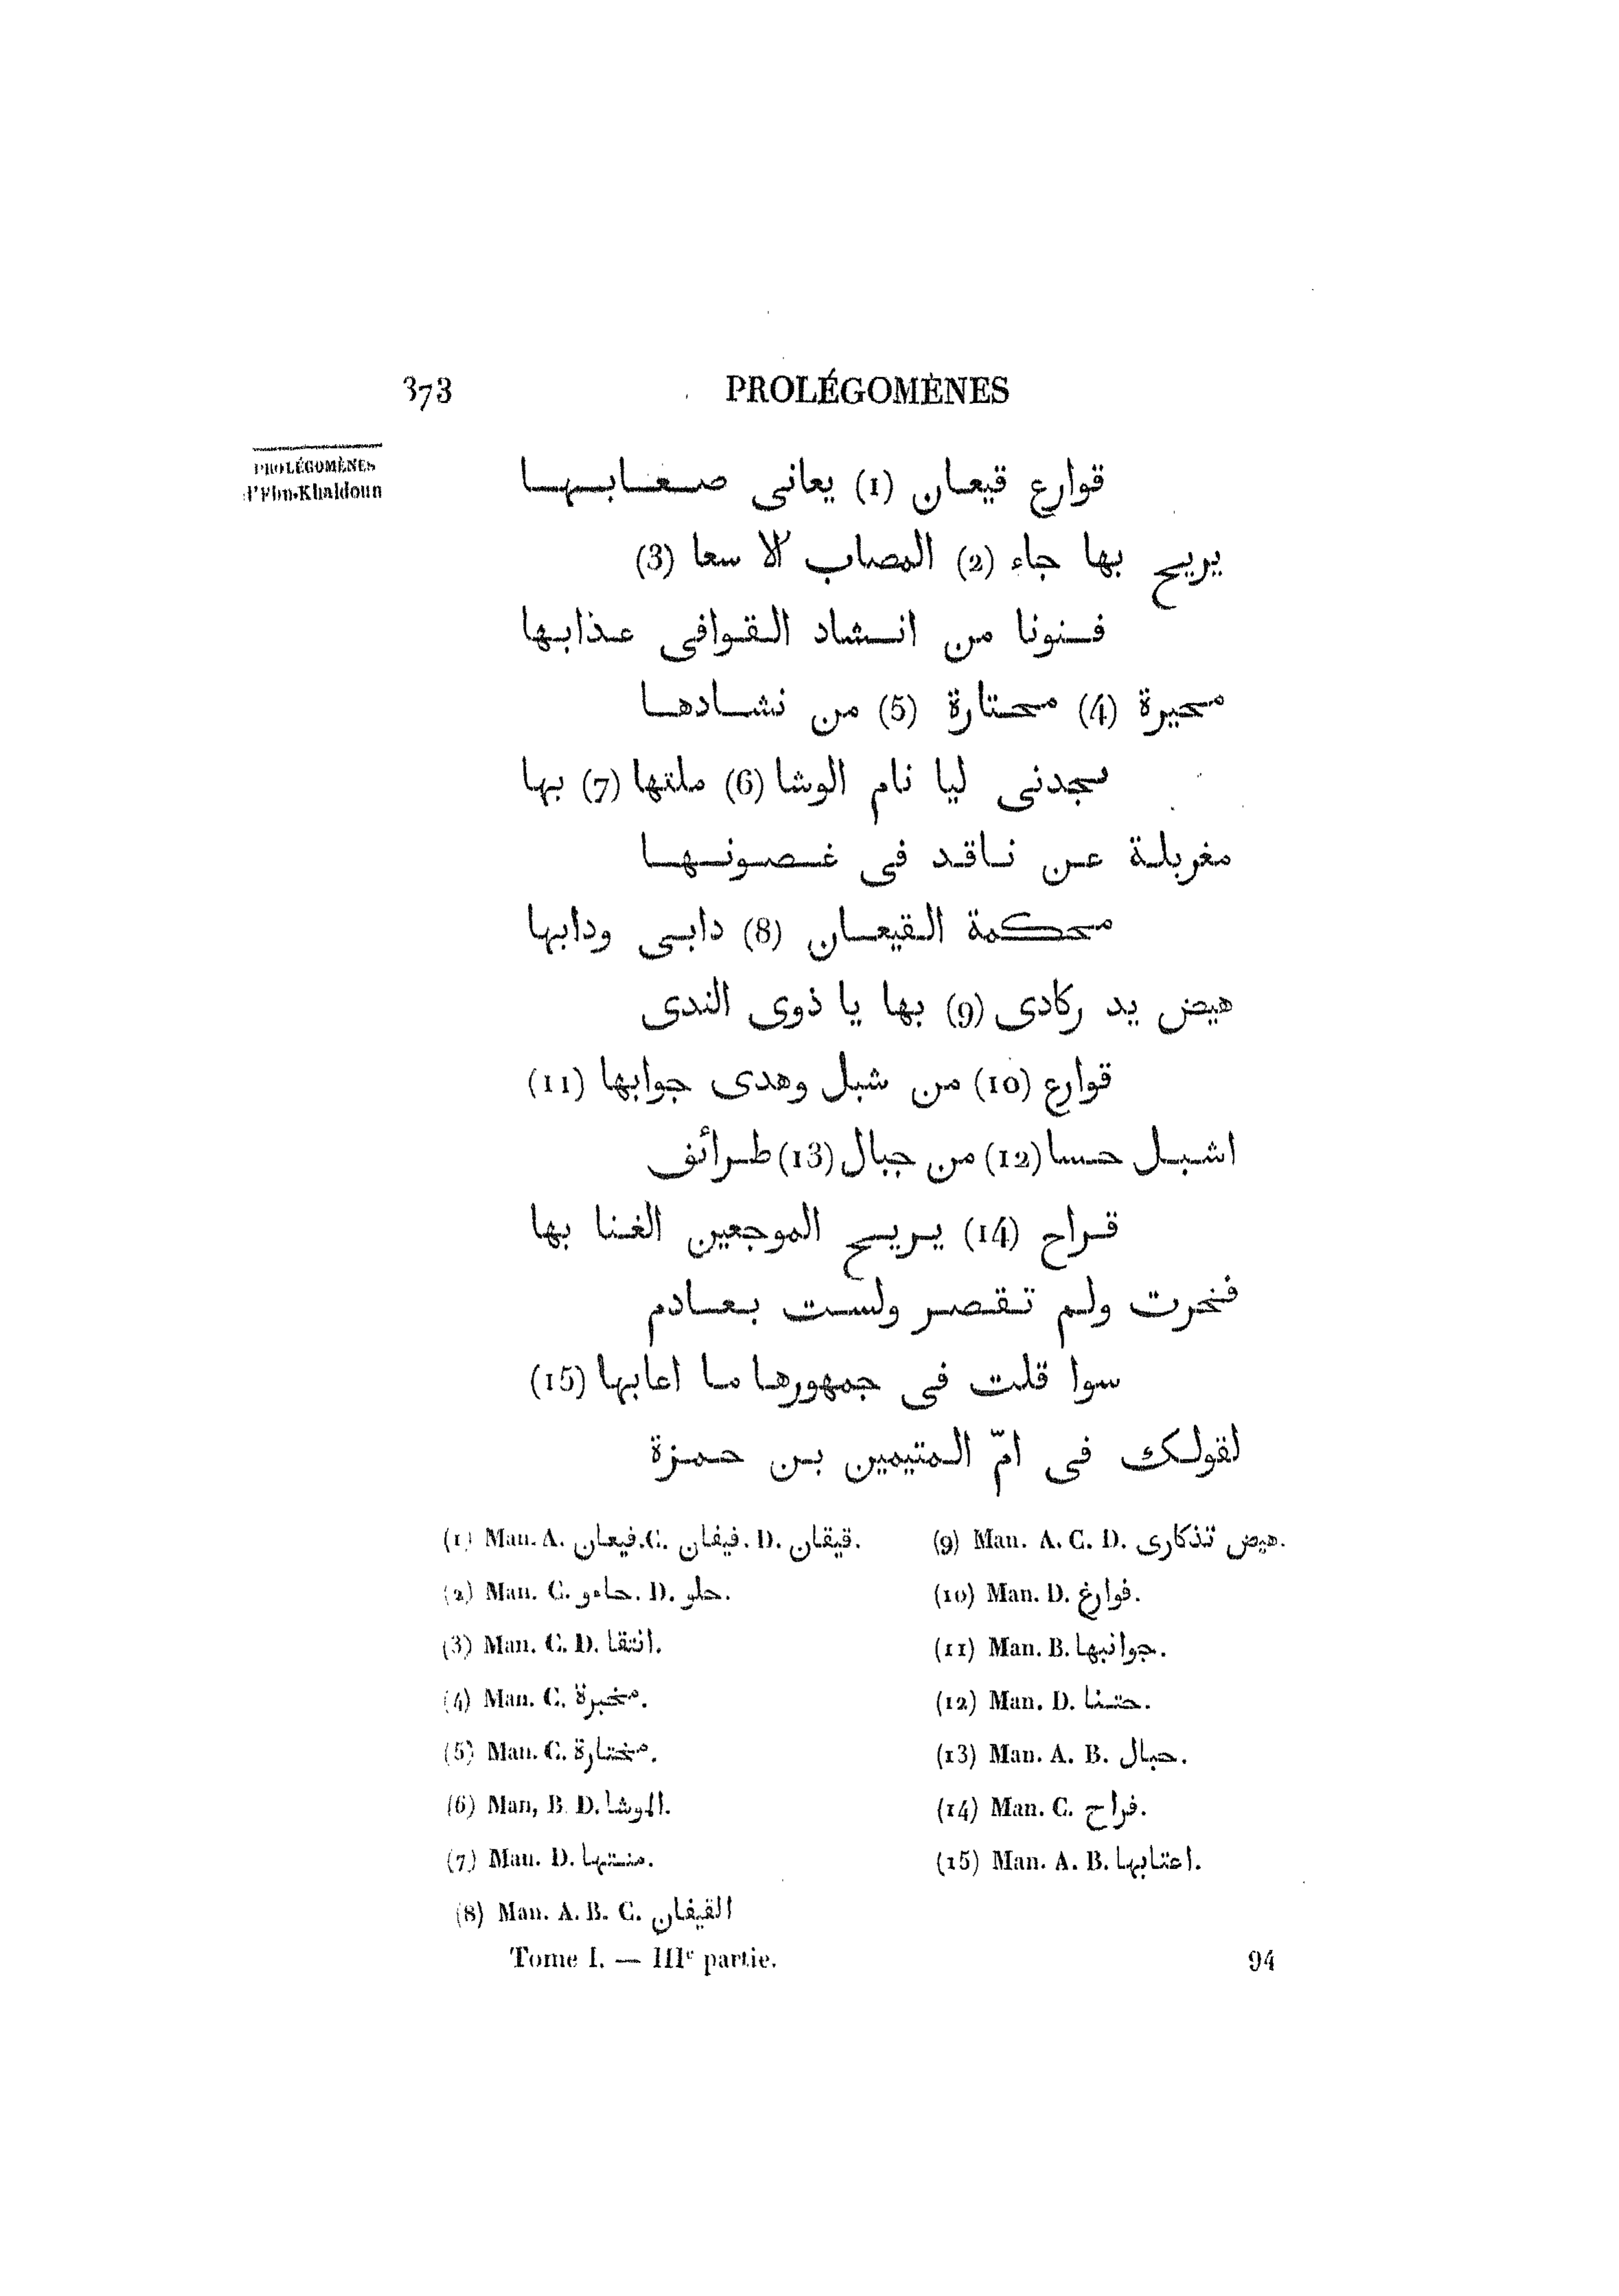 373
PROLÉGOMÈNES
PROLÉGOMÈNES
d'Ebn-Khaldoun
قوارع قيعان (1) يعانى صعابها
يريح بها جاء (2) المصاب كلا سعا (3)
فنونا من انشاد القوافى عذابها
محيرة (4) محتارة (5) من نشادها
تجدنى ليا نام الوشا (6) ملتها (7) بها
مغربلة عن ناقد فى غصونها
محكمة القيعان (8) دابى ودابها
هيض يد ركادى (9) بها يا ذوى الندى
قوارع (10) من شبل وهدى جوابها (11)
اشبل حسا (12) من جبال (13) طرائف
قراح (14) يريح الموجعين الغنا بها
فخرت ولم تقصر ولست بعادم
سوا قلت فى جمهورها ما اعابها (15)
لقولك فى امّ المتيمين بن حمزة
(1) Man. A. فيعان. C. فيفان. D. قيقان.
(2) Man. C. حاءو. D. حلو.
(3) Man. C. D. انتقا.
(4) Man. C. مخبرة.
(5) Man. C. مختارة.
(6) Man, B. D. الموشا.
(7) Man. D. منتها.
(8) Man. A. B. C. القيفان
(9) Man. A. C. D. هيض تذكارى.
(10) Man. D. فوارغ.
(11) Man. B. جوانبها.
(12) Man. D. حتنا.
(13) Man. A. B. حبال.
(14) Man. C. فراح.
(15) Man. A. B. اعتابها.
Tome I. — IIIe partie.
94